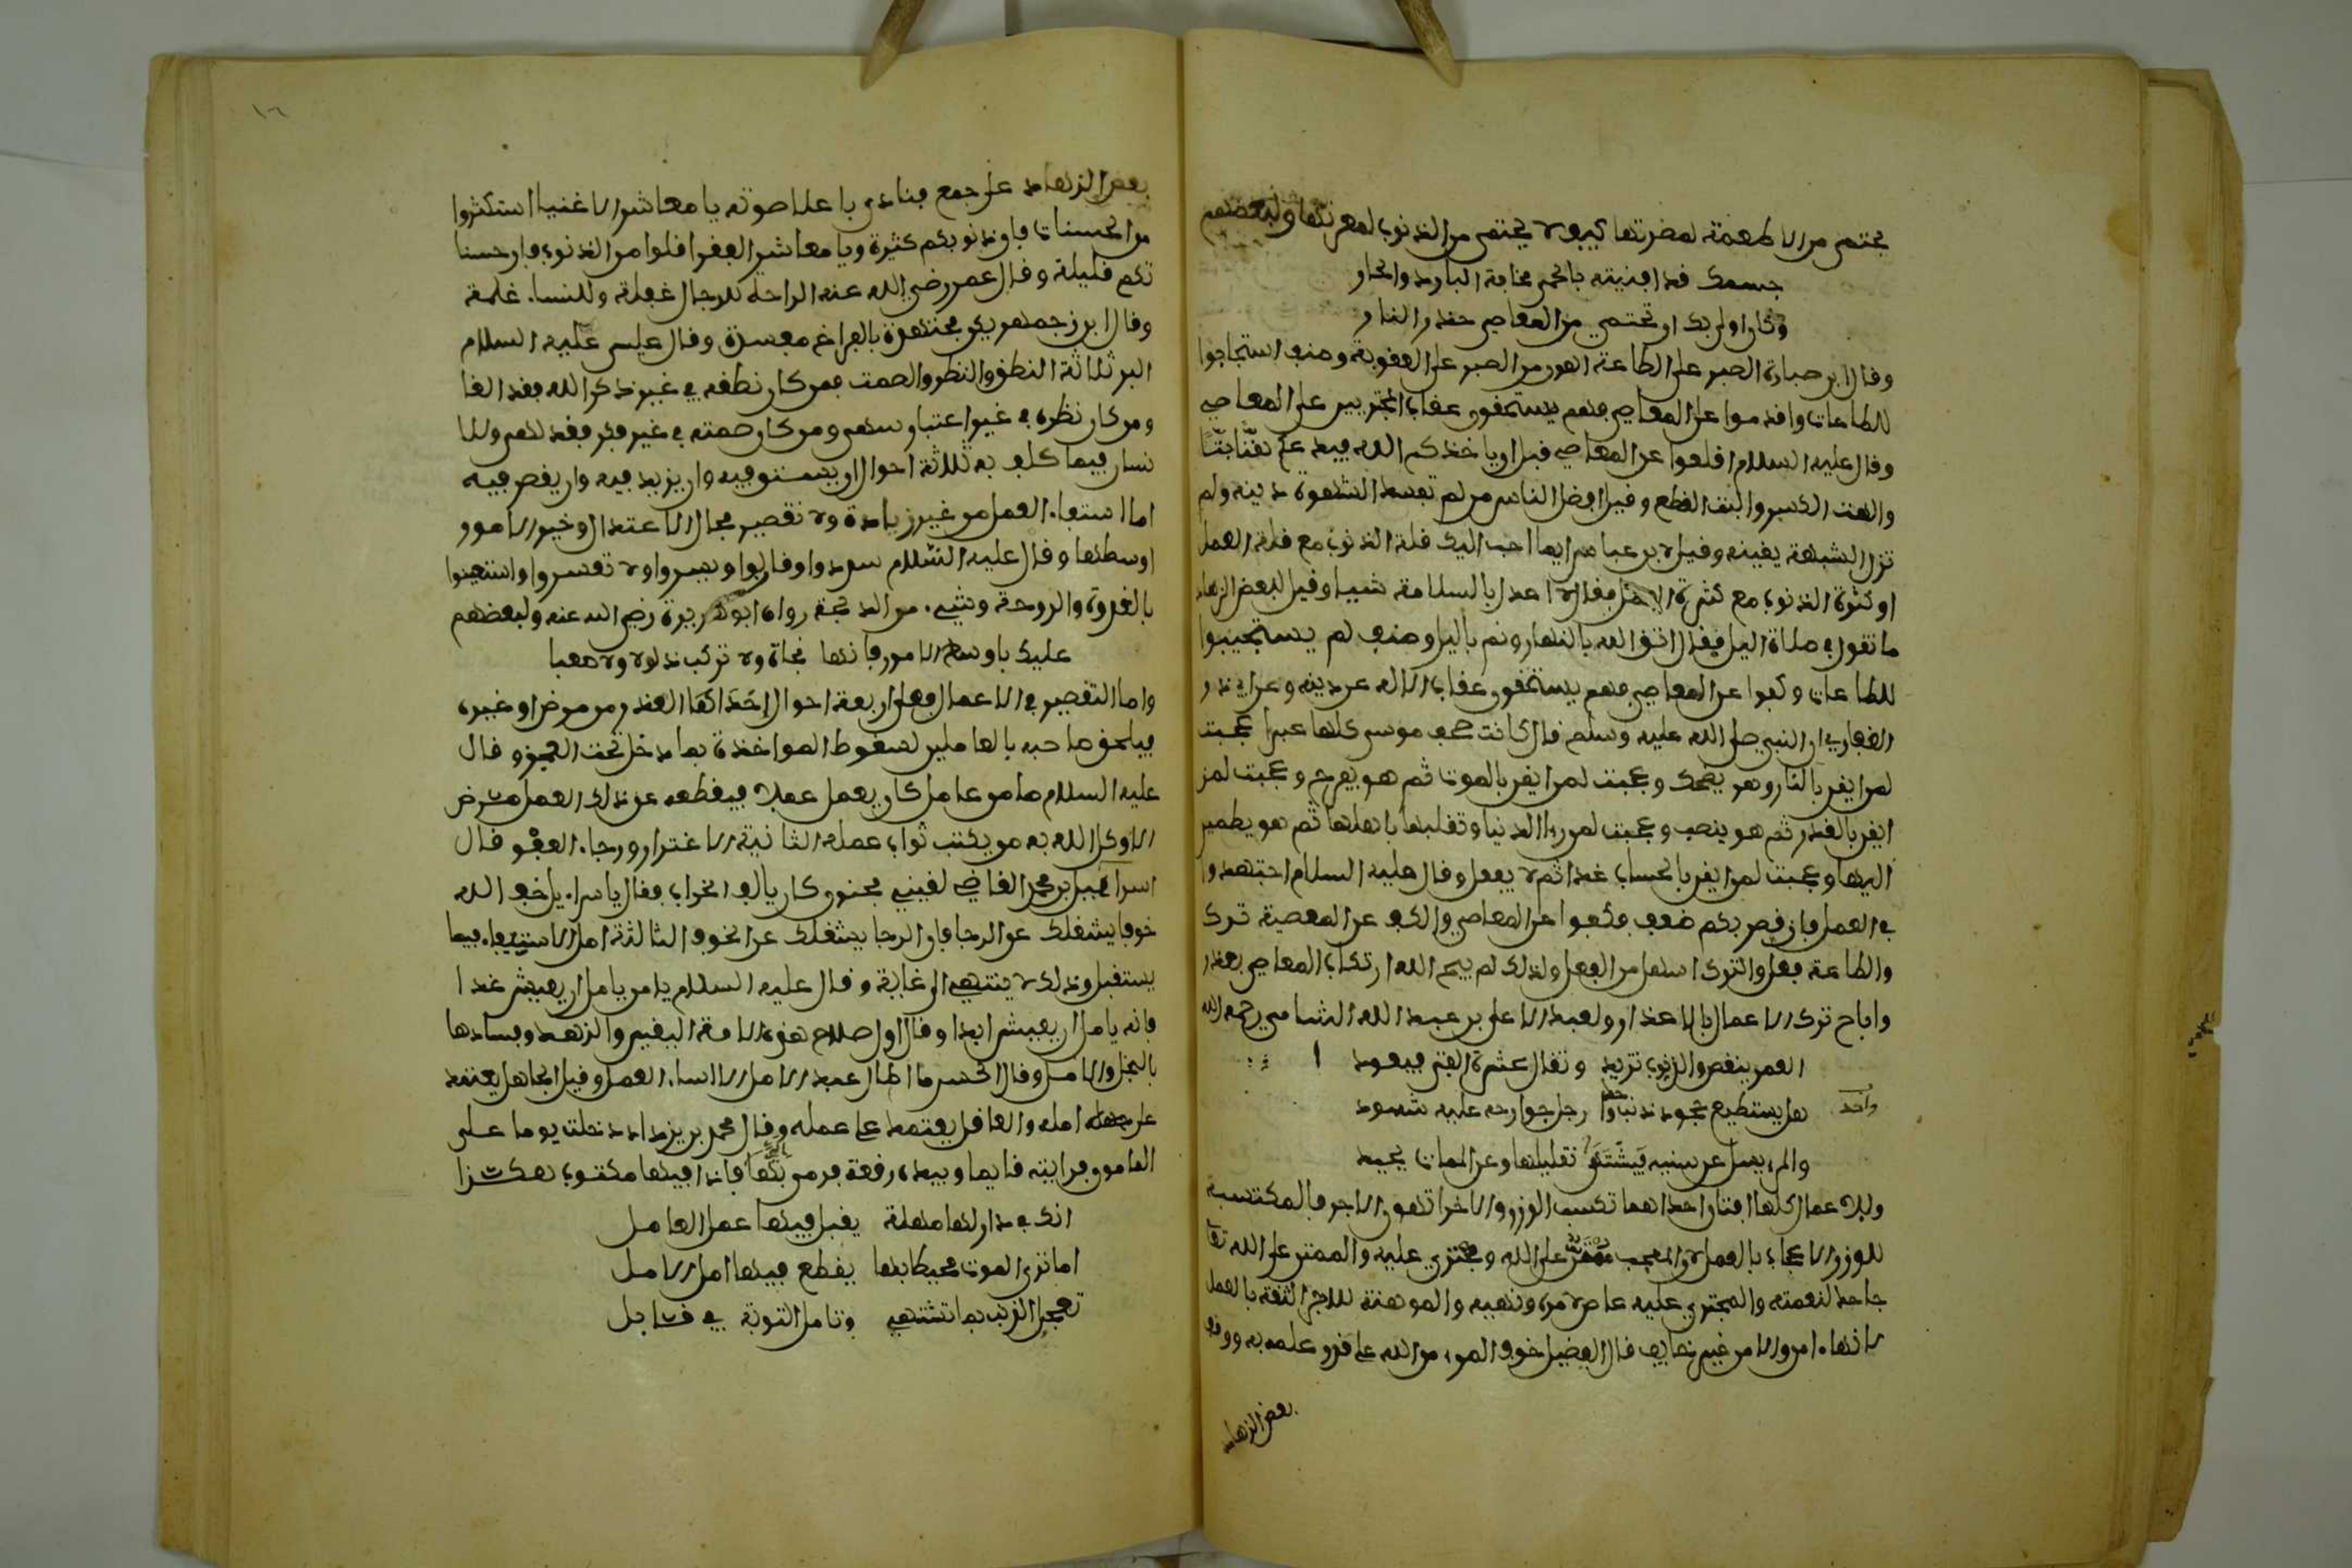 يحتمي من الاطعمة لمضرتها كيف لا يحتمي من الذنوب لمعرتها ولبعضهم
جسمك قد افنيته بالحمى مخافة البارد والحار
وكان اولى بك ان تحتمي من المعاصي حذر النار
وقال ابن صبارة الصبر على الطاعة اهون من الصبر على العقوبة وصنف استجابوا
للطاعات واقدموا على المعاصي فهم يستحقون عقاب المجتريين على المعاصي
وقال عليه السلام اقلعوا عن المعاصي قبل ان ياخذكم الله فيدعكم هتّا بتّا
والهت الكسر والبت القطع وقيل افضل الناس من لم تفسد الشهوة دينه ولم
تزل الشبهة يقينه وقيل لابن عباس ايما احب اليك قلة الذنوب مع قلة العمل
او كثرة الذنوب مع كثرة العمل فقال لا اعدل بالسلامة شيا وقيل لبعض الزهاد
ما تقول في صلاة اليل فقال اتق الله بالنهار ونم باليل وصنف لم يستجيبوا
للطاعات وكفوا عن المعاصي فهم يستحقون عقاب اللاله عن دينه وعن ابي ذر
الغفاري ان النبي صلى الله عليه وسلم قال كانت صحف موسى كلها عبرا عجبت
لمن ايقن بالنار وهو يضحك وعجبت لمن ايقن بالموت ثم هو يفرح وعجبت لمن
ايقن بالقدر ثم هو ينصب وعجبت لمن را الدنيا وتقلبها باهلها ثم هو يطمين
اليها وعجبت لمن ايقن بالحساب غدا ثم لا يعمل وقال عليه السلام اجتهدوا
في العمل فان قصر بكم ضعف فكفوا عن المعاصي والكف عن المعصية ترك
والطاعة فعل والترك اسهل من الفعل ولذلك لم يبح الله ارتكاب المعاصي بعذر
واباح ترك الاعمال بالاعذار ولعبد الاعلى بن عبد الله الشامي رحمه الله
العمر ينقص والذنوب تزيد وتقال عثرة الفتى فيعود
هل يستطيع جحود ذنب واحد رجل جوارحه عليه شهود
واحد
والمرء يسل عن سنيه فيشتهى تقليلها وعن الممات يحيد
وللاعمال كلها افتان احداهما تكسب الوزر والاخرا توهن الاجر فالمكتسبة
للوزر الاعجاب بالعمل لان المعجب ممتن على الله ومجتري عليه والممتن على الله تعا
جاحد لنعمته والمجتري عليه عاص لامره ونهيه والموهنة للاجر الثقة بالعمل
لانها امن والامن غير خايف قال الفضيل خوف المرء من الله على قدر علمه به ووقف
بعض الزهاد
١٦
بعض الزهاد على جمع فنادى باعلا صوته يا معاشر الاغنيا استكثروا
من الحسنات فان ذنوبكم كثيرة ويا معاشر الفقرا اقلوا من الذنوب فان حسنا
تكم قليلة وقال عمر رضي الله عنه الراحة للرجال غفلة وللنساء غلمة
وقال ابزرجمهر يكن مجتهدة بالفراغ مفسدة وقال عيسى عليه السلام
البر ثلاثة النطق والنظر والصمت فمن كان نطقه في غير ذكر الله فقد الغا
ومن كان نظره في غير اعتبار سهى ومن كان صمته في غير فكر فقد لهى وللا
نسان فيما كلف به ثلاثة احوال ان يستوفيه وان يزيد فيه وان يقصر فيه
اما استيفاء العمل من غير زيادة ولا تقصير فحال الاعتدال وخير الامور
اوسطها وقال عليه السلام سددوا وقاربوا ويسروا ولا تعسروا واستعينوا
بالغدوة والروحة وشيء من الدلجة رواه ابو هريرة رضي الله عنه ولبعضهم
عليك باوساط الامور فانها نجاة ولا تركب ذلولا ولا صعبا
واما التقصير في الاعمال فعلى اربعة احوال احداها العذر من مرض او غيره
فيلحق صاحبه بالعاملين لسقوط المواخذة بما دخل تحت العجز وقال
عليه السلام ما من عامل كان يعمل عملا فيقطعه عن ذلك العمل مرض
الا وكل الله به من يكتب ثواب عمله الثانية الاغترار ورجاء العفو قال
اسراءيل بن محمد القاضي لقيني مجنون كان يالف الخراب فقال ياسراءيل خف الله
خوفا يشغلك عن الرجا فان الرجا يشغلك عن الخوف الثالثة امل الاستيفاء فيما
يستقبل وذلك لا ينتهي الى غاية وقال عليه السلام يا من يامل ان يعيش غدا
فانه يامل ان يعيش ابدا وقال اول صلاح هذه الامة اليقين والزهد وفسادها
بالبخل والامل وقال الحسن ما اطال عبد الامل الا اساء العمل وقيل الجاهل يعتمد
على جهله امله والعاقل يعتمد على عمله وقال محمد بن يزداد دخلت يوما على
المامون فرايته قايما وبيده رقعة فرمى بها فاذا فيها مكتوب هكذا
انك في دار لها مهلة يقبل فيها عمل العامل
اما ترى الموت محيطا بها يقطع فيها امل الامل
تعجل الذنب بما تشتهي وتامل التوبة في قابل